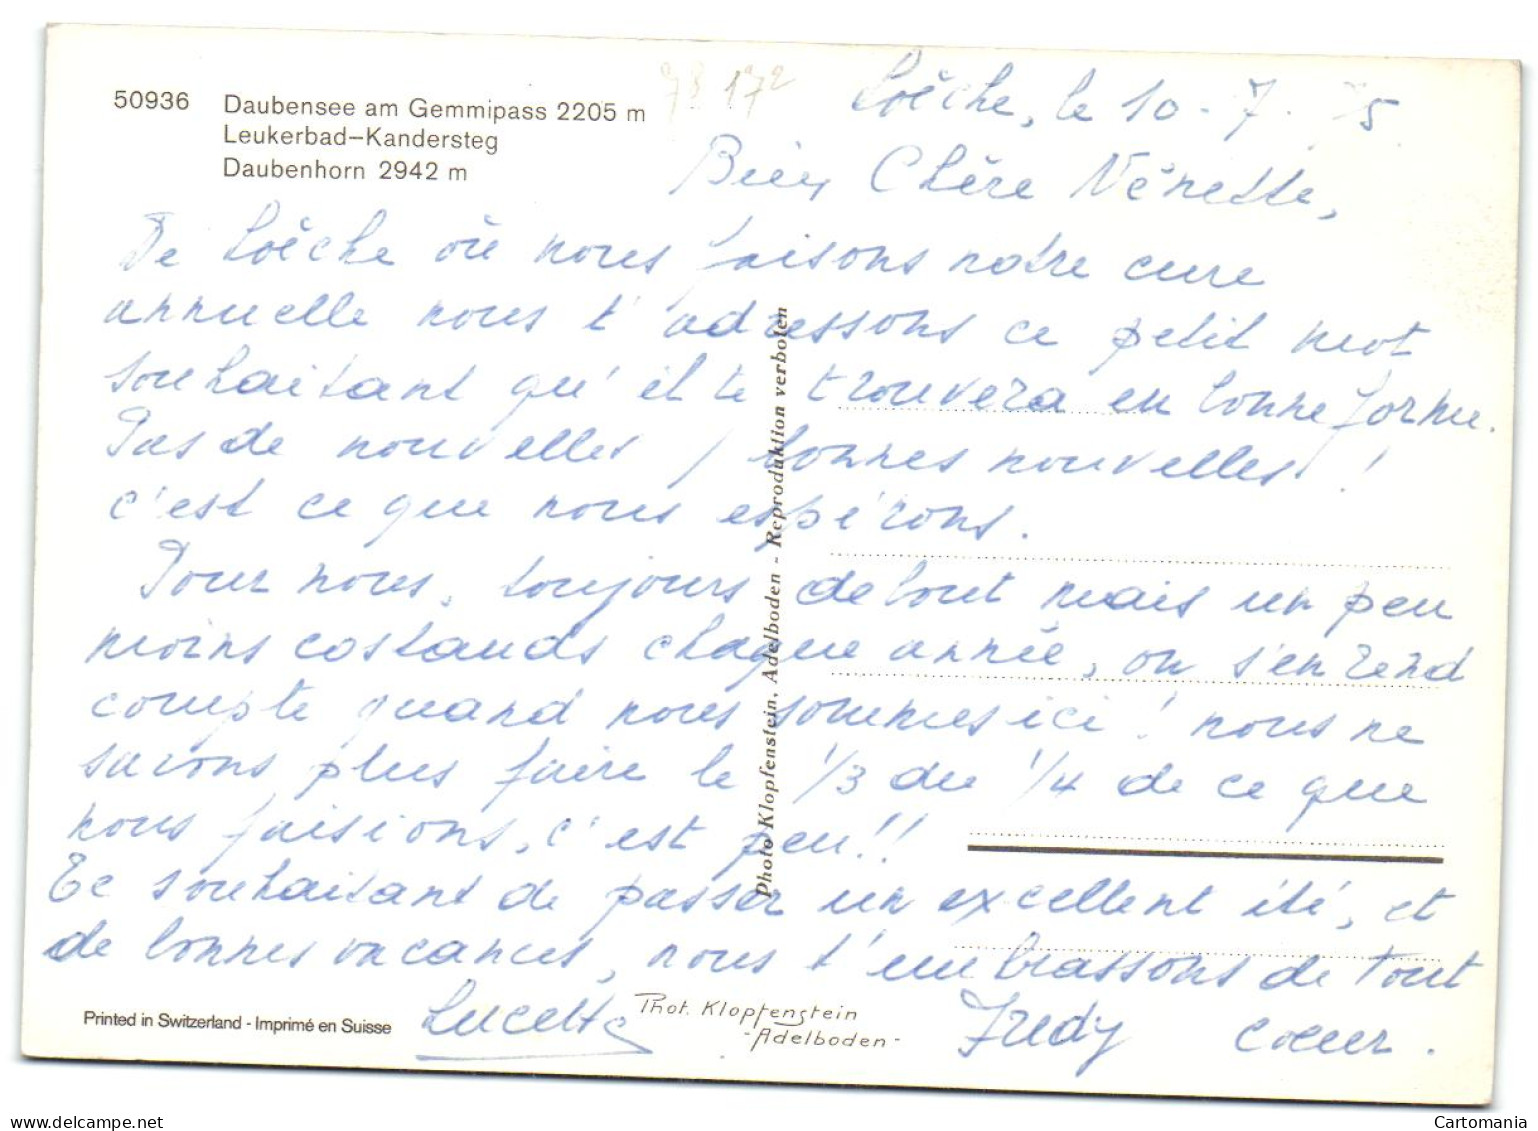 50936 Daubensee am Gemmipass 2205 m
Leukerbad–Kandersteg
Daubenhorn 2942 m
Loèche, le 10-7-75
Bien Chère Nénette,
De Loèche où nous faisons notre cure
annuelle nous t'adressons ce petit mot
souhaitant qu'il te trouvera en bonne forme.
Pas de nouvelles, bonnes nouvelles !
c'est ce que nous espérons.
Pour nous, toujours debout mais un peu
moins costauds chaque année, on s'en rend
compte quand nous sommes ici ! nous ne
savons plus faire le 1/3 du 1/4 de ce que
nous faisions, c'est peu!!
Te souhaitant de passer un excellent été, et
de bonnes vacances, nous t'embrassons de tout
coeur.
Lucette Fredy
Photo Klopfenstein, Adelboden - Reproduktion verboten
Printed in Switzerland - Imprimé en Suisse
Phot. Klopfenstein
-Adelboden-
delcampe.net
Cartomania